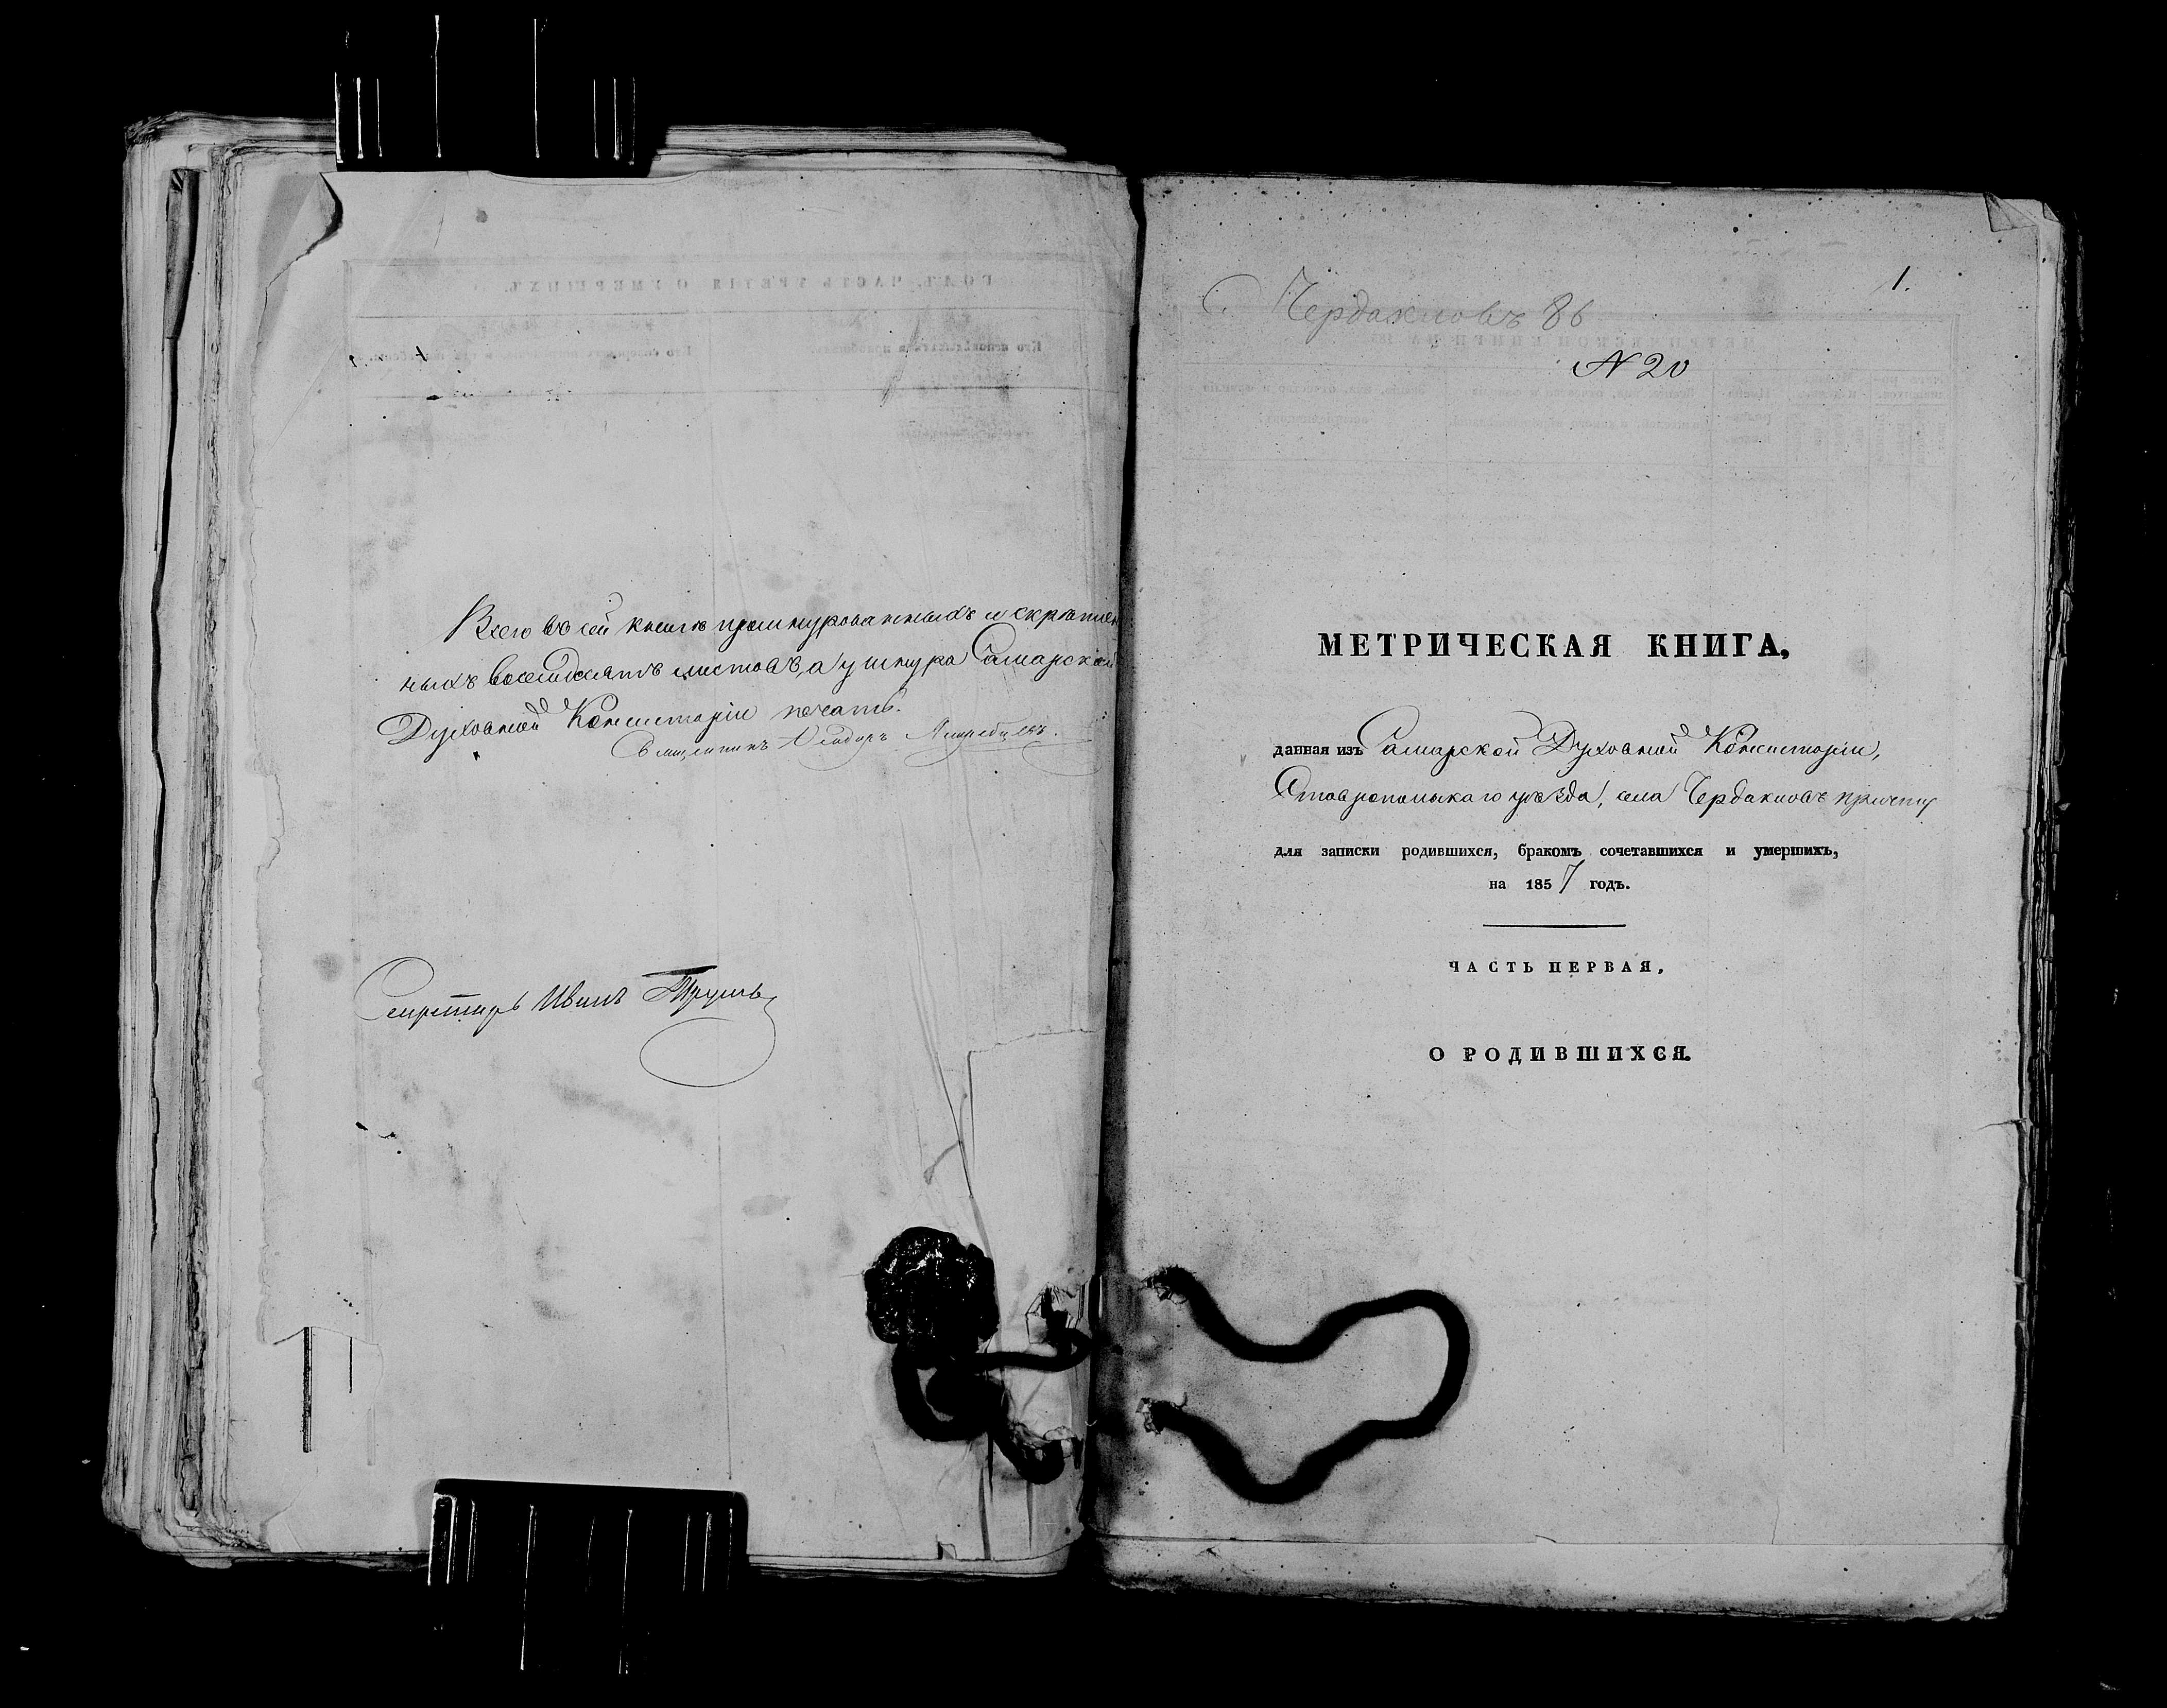 Всего въ сей книге прошнурованныхъ и скреплен
ныхъ восемдесятъ листовъ, а у шнура Самарской
Духовной Консисторіи печать.
Священникъ
Секретарь Иванъ
1.
с. Чердакловъ 86
N 20
МЕТРИЧЕСКАЯ КНИГА,
данная изъ Самарской Духовной Консисторіи,
Ставропольскаго уѣзда, села Чердакловъ причту
для записки родившихся, бракомъ сочетавшихся и умершихъ,
на 1857 годъ.
ЧАСТЬ ПЕРВАЯ,
О РОДИВШИХСЯ.